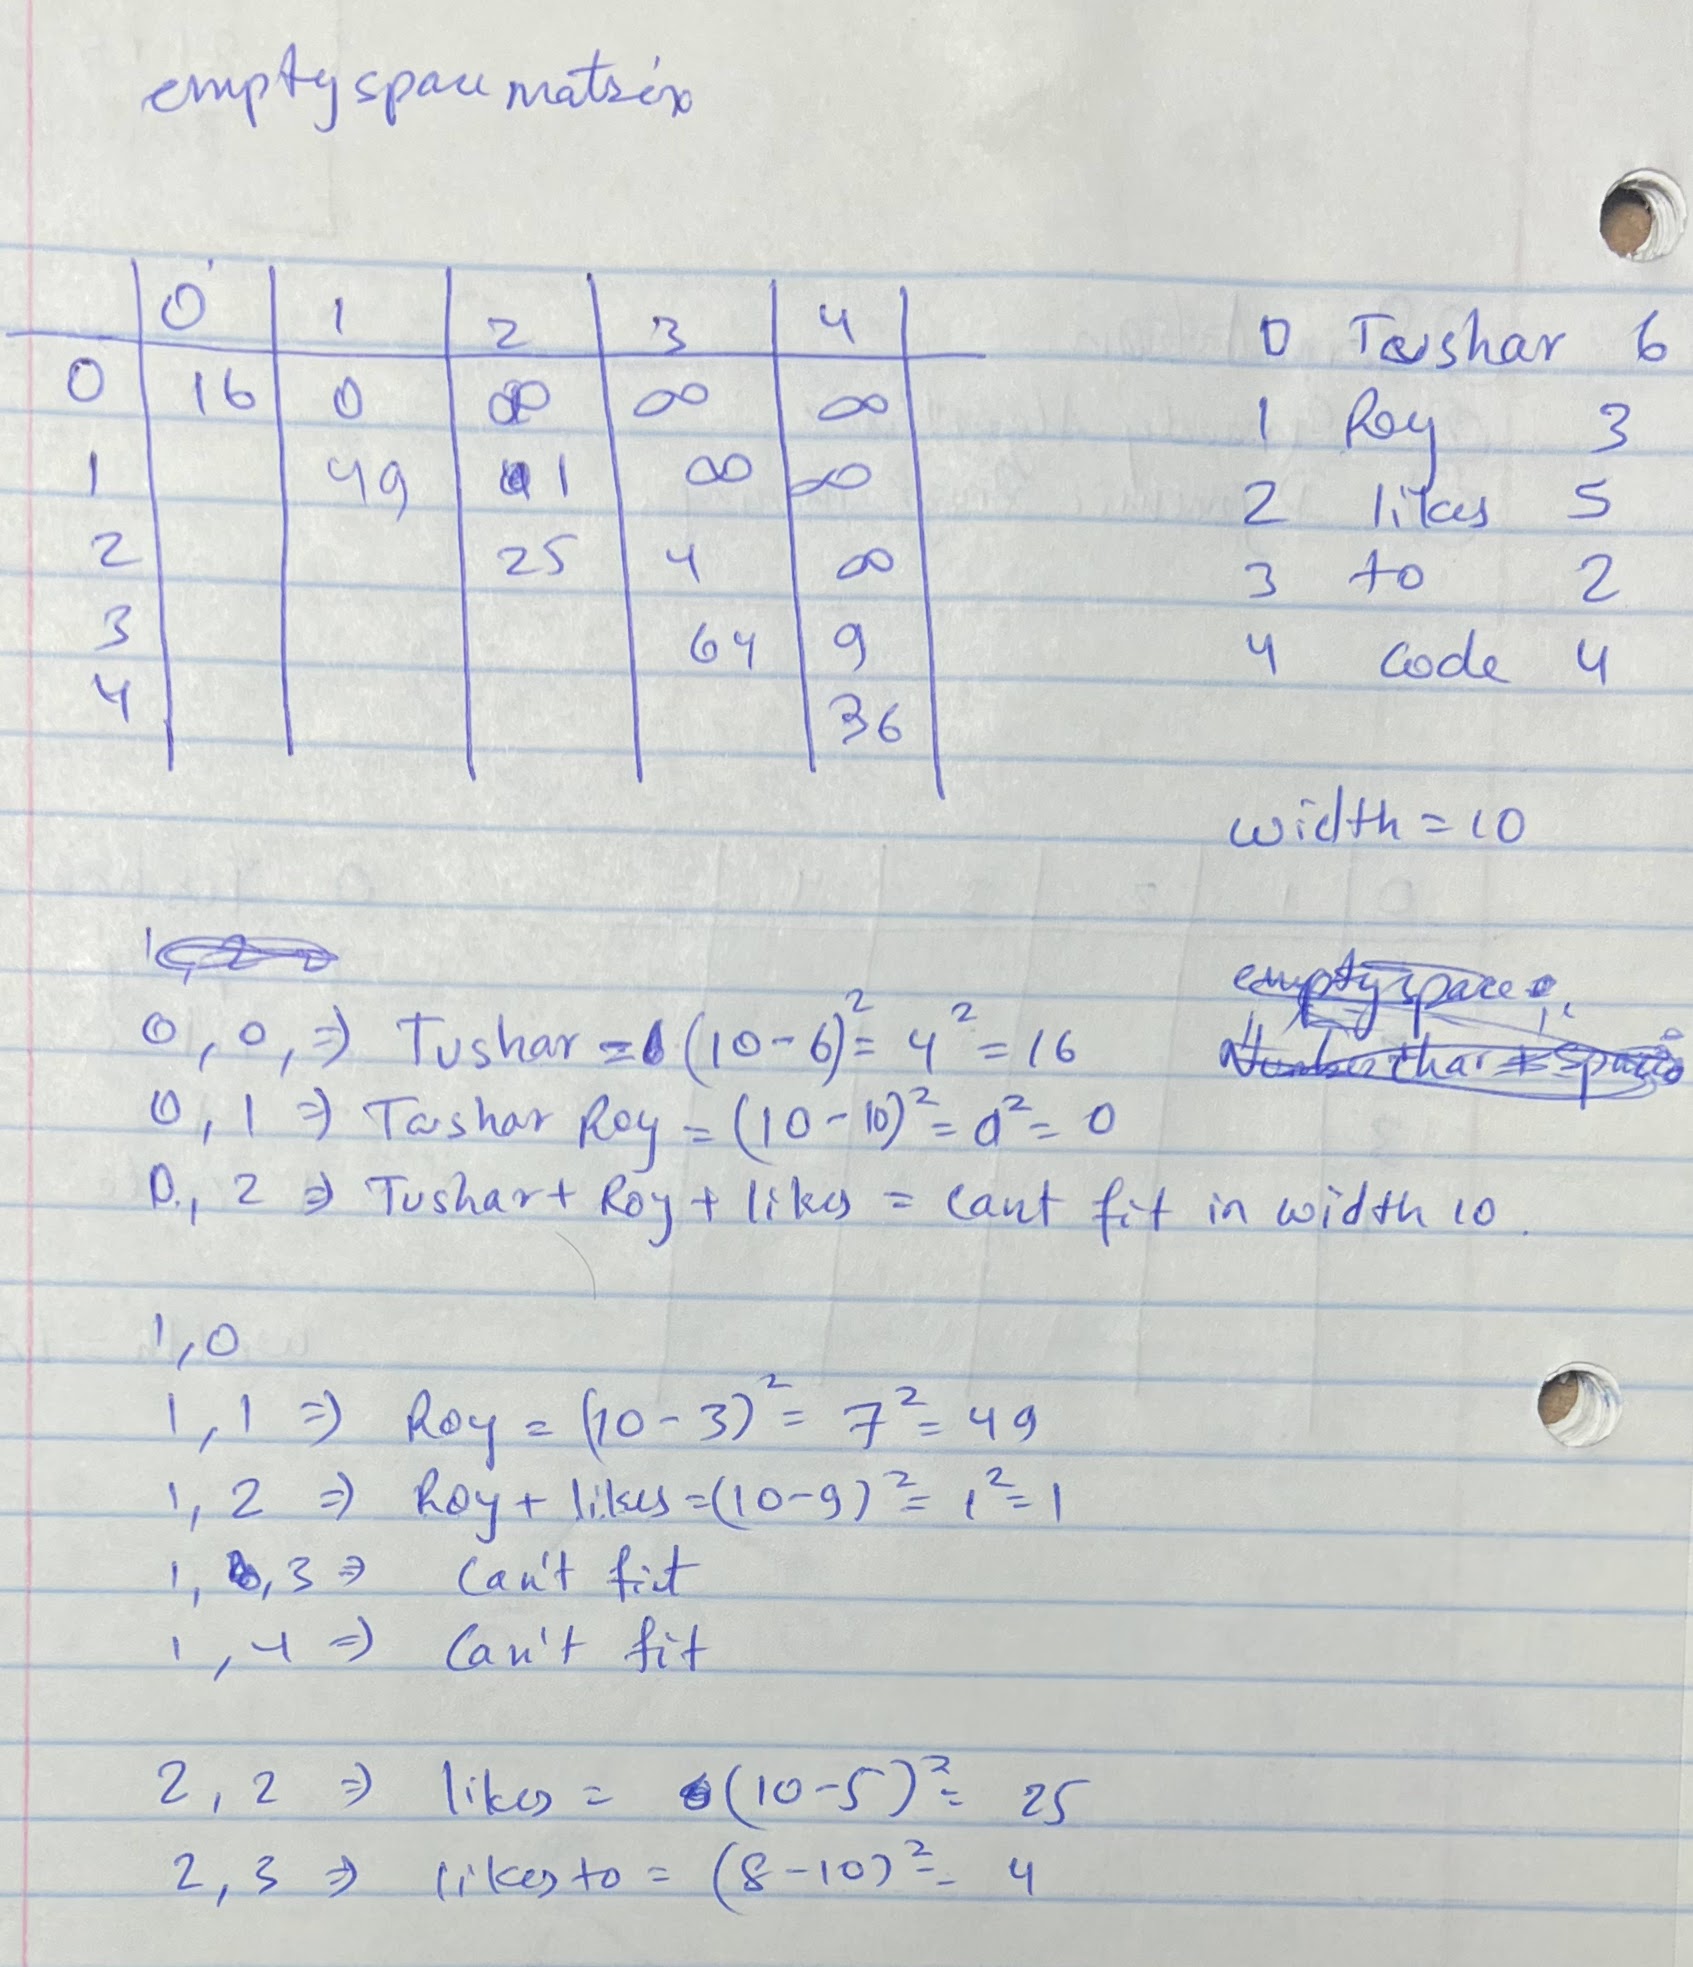 empty space matrix
0 1 2 3 4
0 16 0 ∞ ∞ ∞
1 49 1 ∞ ∞
2 25 4 ∞
3 64 9
4 36
0 Tushar 6
1 Roy 3
2 likes 5
3 to 2
4 code 4
width = 10
empty space
0,0, ⇒ Tushar = (10-6)² = 4² = 16
0,1 ⇒ Tushar Roy = (10-10)² = 0² = 0
0,2 ⇒ Tushar + Roy + likes = cant fit in width 10.
1,0
1,1 ⇒ Roy = (10-3)² = 7² = 49
1,2 ⇒ Roy + likes = (10-9)² = 1² = 1
1, 3 ⇒ Can't fit
1,4 ⇒ Can't fit
2,2 ⇒ likes = (10-5)² = 25
2,3 ⇒ likes to = (8-10)² = 4